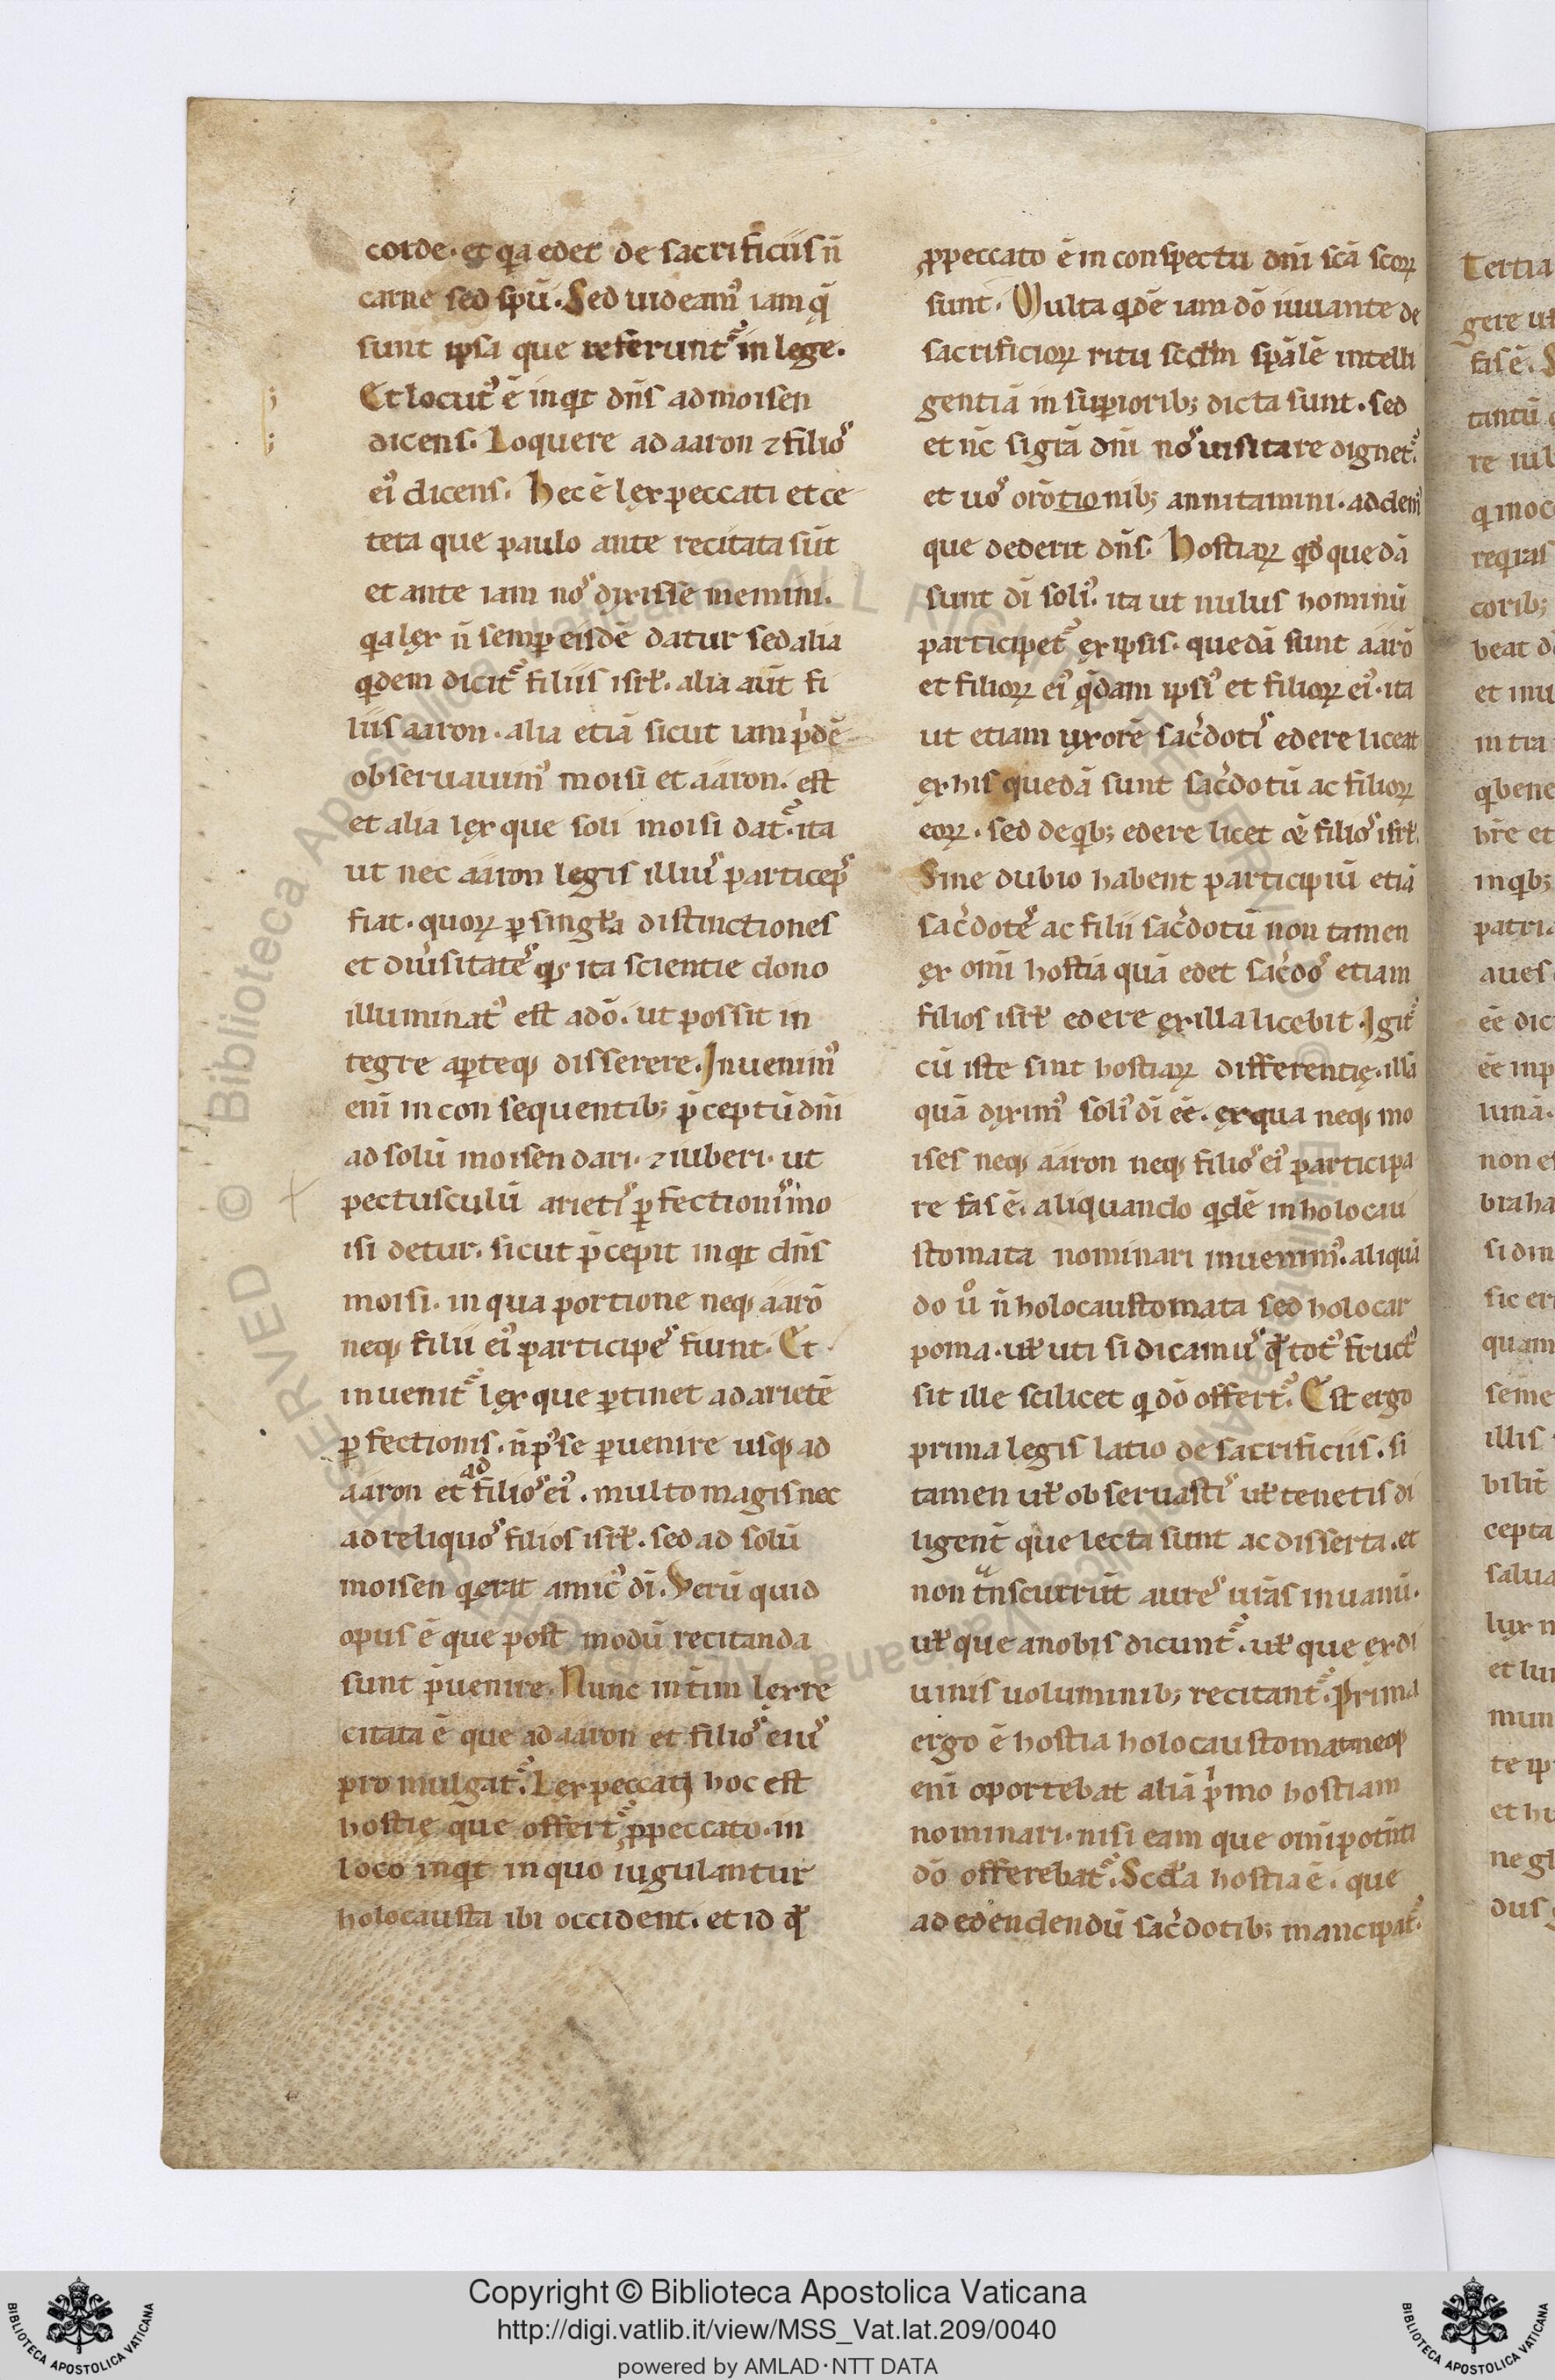 corde. et q̄a edet de sacrificiis n̄
carne sed sp̄u. Sed uideam᷒ iam q̄
sunt ipsa que referunt᷑ in lege.
Et locut᷒ ē inqͥt dn̄s ad moisen
dicens. Loquere ad aaron ⁊ filio᷒
ei᷒ dicens. Hec ē lex peccati et ce
tera que paulo ante recitata sūt
et ante iam no᷒ dixisse memini.
qͥa lex n̄ semꝑ eisdē datur sed alia
qͥdem dicit᷑ filiis isrł. alia aūt fi
liis aaron. alia etiā sicut iam pͥdē
obseruauim᷒ moisi et aaron. est
et alia lex que soli moisi dat᷑. ita
ut nec aaron legis illiu᷒ particep᷒
fiat. quoꝝ ꝑ singła distinctiones
et diu̾sitate᷒ qͥs ita scientie dono
illuminat᷒ est a dō. ut possit in
tegre aꝑteqꝫ disserere. Inuenim᷒
eni̅ in con sequentibꝫ p̄ceptū dn̄i
ad solū moisen dari. ⁊ iuberi. ut
pectusculū arieti᷒ ꝑfectioni᷒ mo
isi detur. sicut p̄cepit inqͥt dn̄s
moisi. in qua portione neqꝫ aarō
neqꝫ filii ei᷒ participe᷒ fiunt. Et
inuenit᷑ lex que ꝑtinet ad arietē
ꝑfectionis. n̄ p᷒se ꝑuenire usqꝫ ad
aaron et ad filio᷒ ei᷒. multo magis nec
ad reliquo᷒ filios isrł. sed ad solū
moisen qͥ erat amic᷒ dī. Verū quid
opus ē que post modū recitanda
sunt p̄uenire. Nunc int̄im lex re
citata ē que ad aaron et filio᷒ eiu᷒
promulgat᷑. Lex peccati hoc est
hostię que offert᷑ ꝓ peccato. in
loco inqͥt in quo iugulantur
holocausta ibi occident. et id qđ
ꝓ peccato ē in conspectu dn̄i sc̄a sc̄oꝝ
sunt. Multa qͥdē iam dō iuuante de
sacrificioꝝ ritu scđm sp̄alē intelli
gentiā in suꝑioribꝫ dicta sunt. sed
et nc̄ si gr̄a dn̄i no᷒ uisitare dignet᷑.
et uo᷒ orōtionibꝫ annitamini. addem᷒
que dederit dn̄s. Hostiaꝝ qͥdē quedā
sunt dī soli᷒. ita ut nulus hominū
participet᷑ ex ipsis. quedā sunt aarō
et filioꝝ ei᷒ q̄dam ipsi᷒ et filioꝝ ei᷒. ita
ut etiam uxorē sac̾doti᷒ edere liceat
ex his quedā sunt sac̾dotū ac filioꝝ
eoꝝ. sed de qͥbꝫ edere licet filio᷒ isrł.
Sine dubio habent participiū etiā
sac̾dote᷒ ac filii sac̾dotū non tamen
ex omī hostia quā edet sac̾do᷒ etiam
filios isrł edere ex illa licebit. Igit᷑
cū iste sint hostiaꝝ differentię. illā
quā dixim᷒ soli᷒ dī eē. ex qua neqꝫ mo
ises neqꝫ aaron neqꝫ filio᷒ ei᷒ participa
re fas ē. aliquando qͥdē in holocau
stomata nominari inuenim᷒. aliquā
do uͦ n̄ holocaustomata sed holocar
poma. uł uti si dicamu᷒ qđ tot᷒ fruct᷒
sit ille scilicet qͥ dō offert᷑. Est ergo
prima legis latio de sacrificiis. si
tamen uł obseruasti᷒ uł tenetis di
ligent̄ que lecta sunt ac disserta. et
non tnscurrūt aure᷒ urās in uanū.
uł que a nobis dicunt᷑. uł que ex di
uinis uoluminibꝫ recitant᷑. Prima
ergo ē hostia holocaustomata neqꝫ
eni̅ oportebat aliā pͥmo hostiam
nominari. nisi eam que omīpotn̄ti
dō offerebat᷑. Scđa hostia ē. que
ad edendendū sac̾dotibꝫ mancipat᷑.
Tertia
gere uł
fas ē.
tantū
re iub
qͥ inoc
reqͥras
coribꝫ
beat
et mu
in tra
qͥ bene
br̄e et
in qͥbꝫ
patria
aues
eē dic
eē inp
lunā.
non es
braha
si din
sic er
quam
seme
illis
bilit̄
cepta
salua
lux
et lu
mun
te ip
et hu
negl
dus
Copyright © Biblioteca Apostolica Vaticana
http://digi.vatlib.it/view/MSS_Vat.lat.209/0040
powered by AMLAD·NTT DATA
BIBLIOTECA APOSTOLICA VATICANA
BIBLIOTECA APOSTOLICA VATICANA